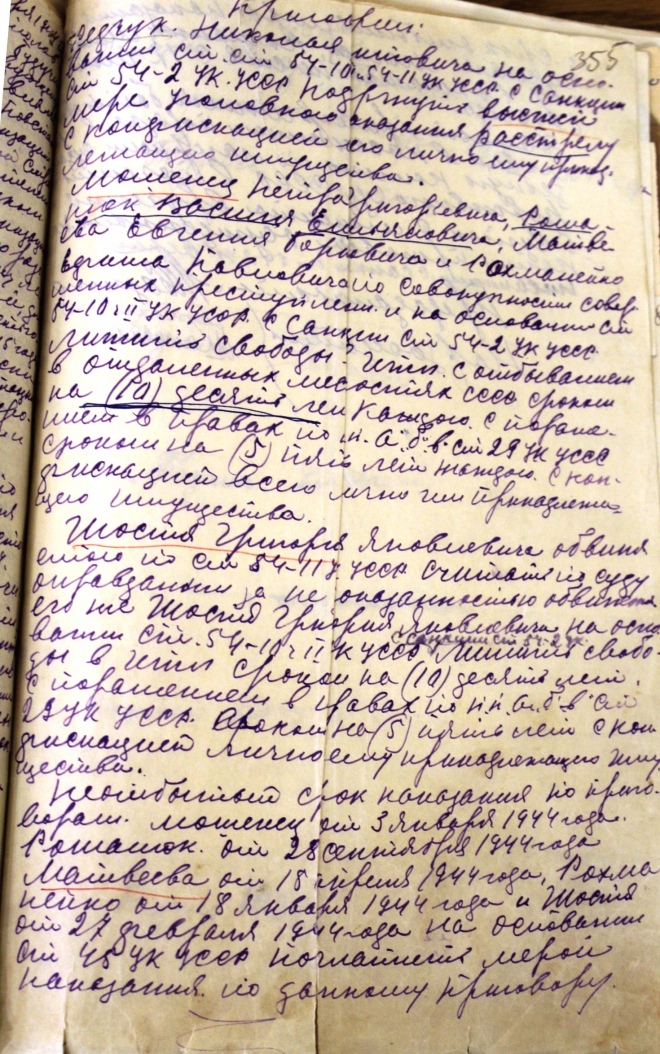 Приговорил:
355
Николая на осно-
вании ст.ст 54-10 и 54-11 УК УССР с санкции
ст 54-2 УК. УССР подвергнуть высшей
мере уголовного наказания расстрелу
с конфискацией его лично ему принад-
лежащего имущества.
Мошенец Петра Григорьевича, Рома
нюк Василия Емельяновича, Матве
ева Евгения и Рохманейко
Павловича по совокупности совер
шенных преступлений и на основании ст
54-10 и II УК УССР. с санкции ст 54-2 УК УССР
лишить свободы в ИТЛ. с отбыванием
в отдаленных местностях СССР сроком
на (10) десять лет каждого. с пораже-
нием в правах по п. а. б. в. ст 29 УК УССР
сроком на (5) пять лет каждого. с кон-
фискацией всего лично им принадлежа-
щего имущества.
Шостя Григория Яковлевича обвиня
емого по ст 54-11 УК УССР считать по суду
оправданным за не доказанностью обвинения
его же Шостя Григория Яковлевича на осно
вании ст. 54-10 ч II УК УССР с санкции ст 54-2 УК лишить свобо-
ды в ИТЛ сроком на (10) десять лет.
с поражением в правах по п.п. а. б. в ст
29 УК УССР. сроком на (5) пять лет с кон
фискацией лично ему принадлежащего иму
щества.
Неотбытый срок наказания по приго-
ворам. Мошенец от 3 января 1944 года.
Романюк. от 28 сентября 1944 года
Матвеева от 18 апреля 1944 года, Рохма
нейко от 18 января 1944 года и Шостя
от 27 февраля 1944 года на основании
ст 45 УК УССР поглотить мерой
наказания по данному приговору.